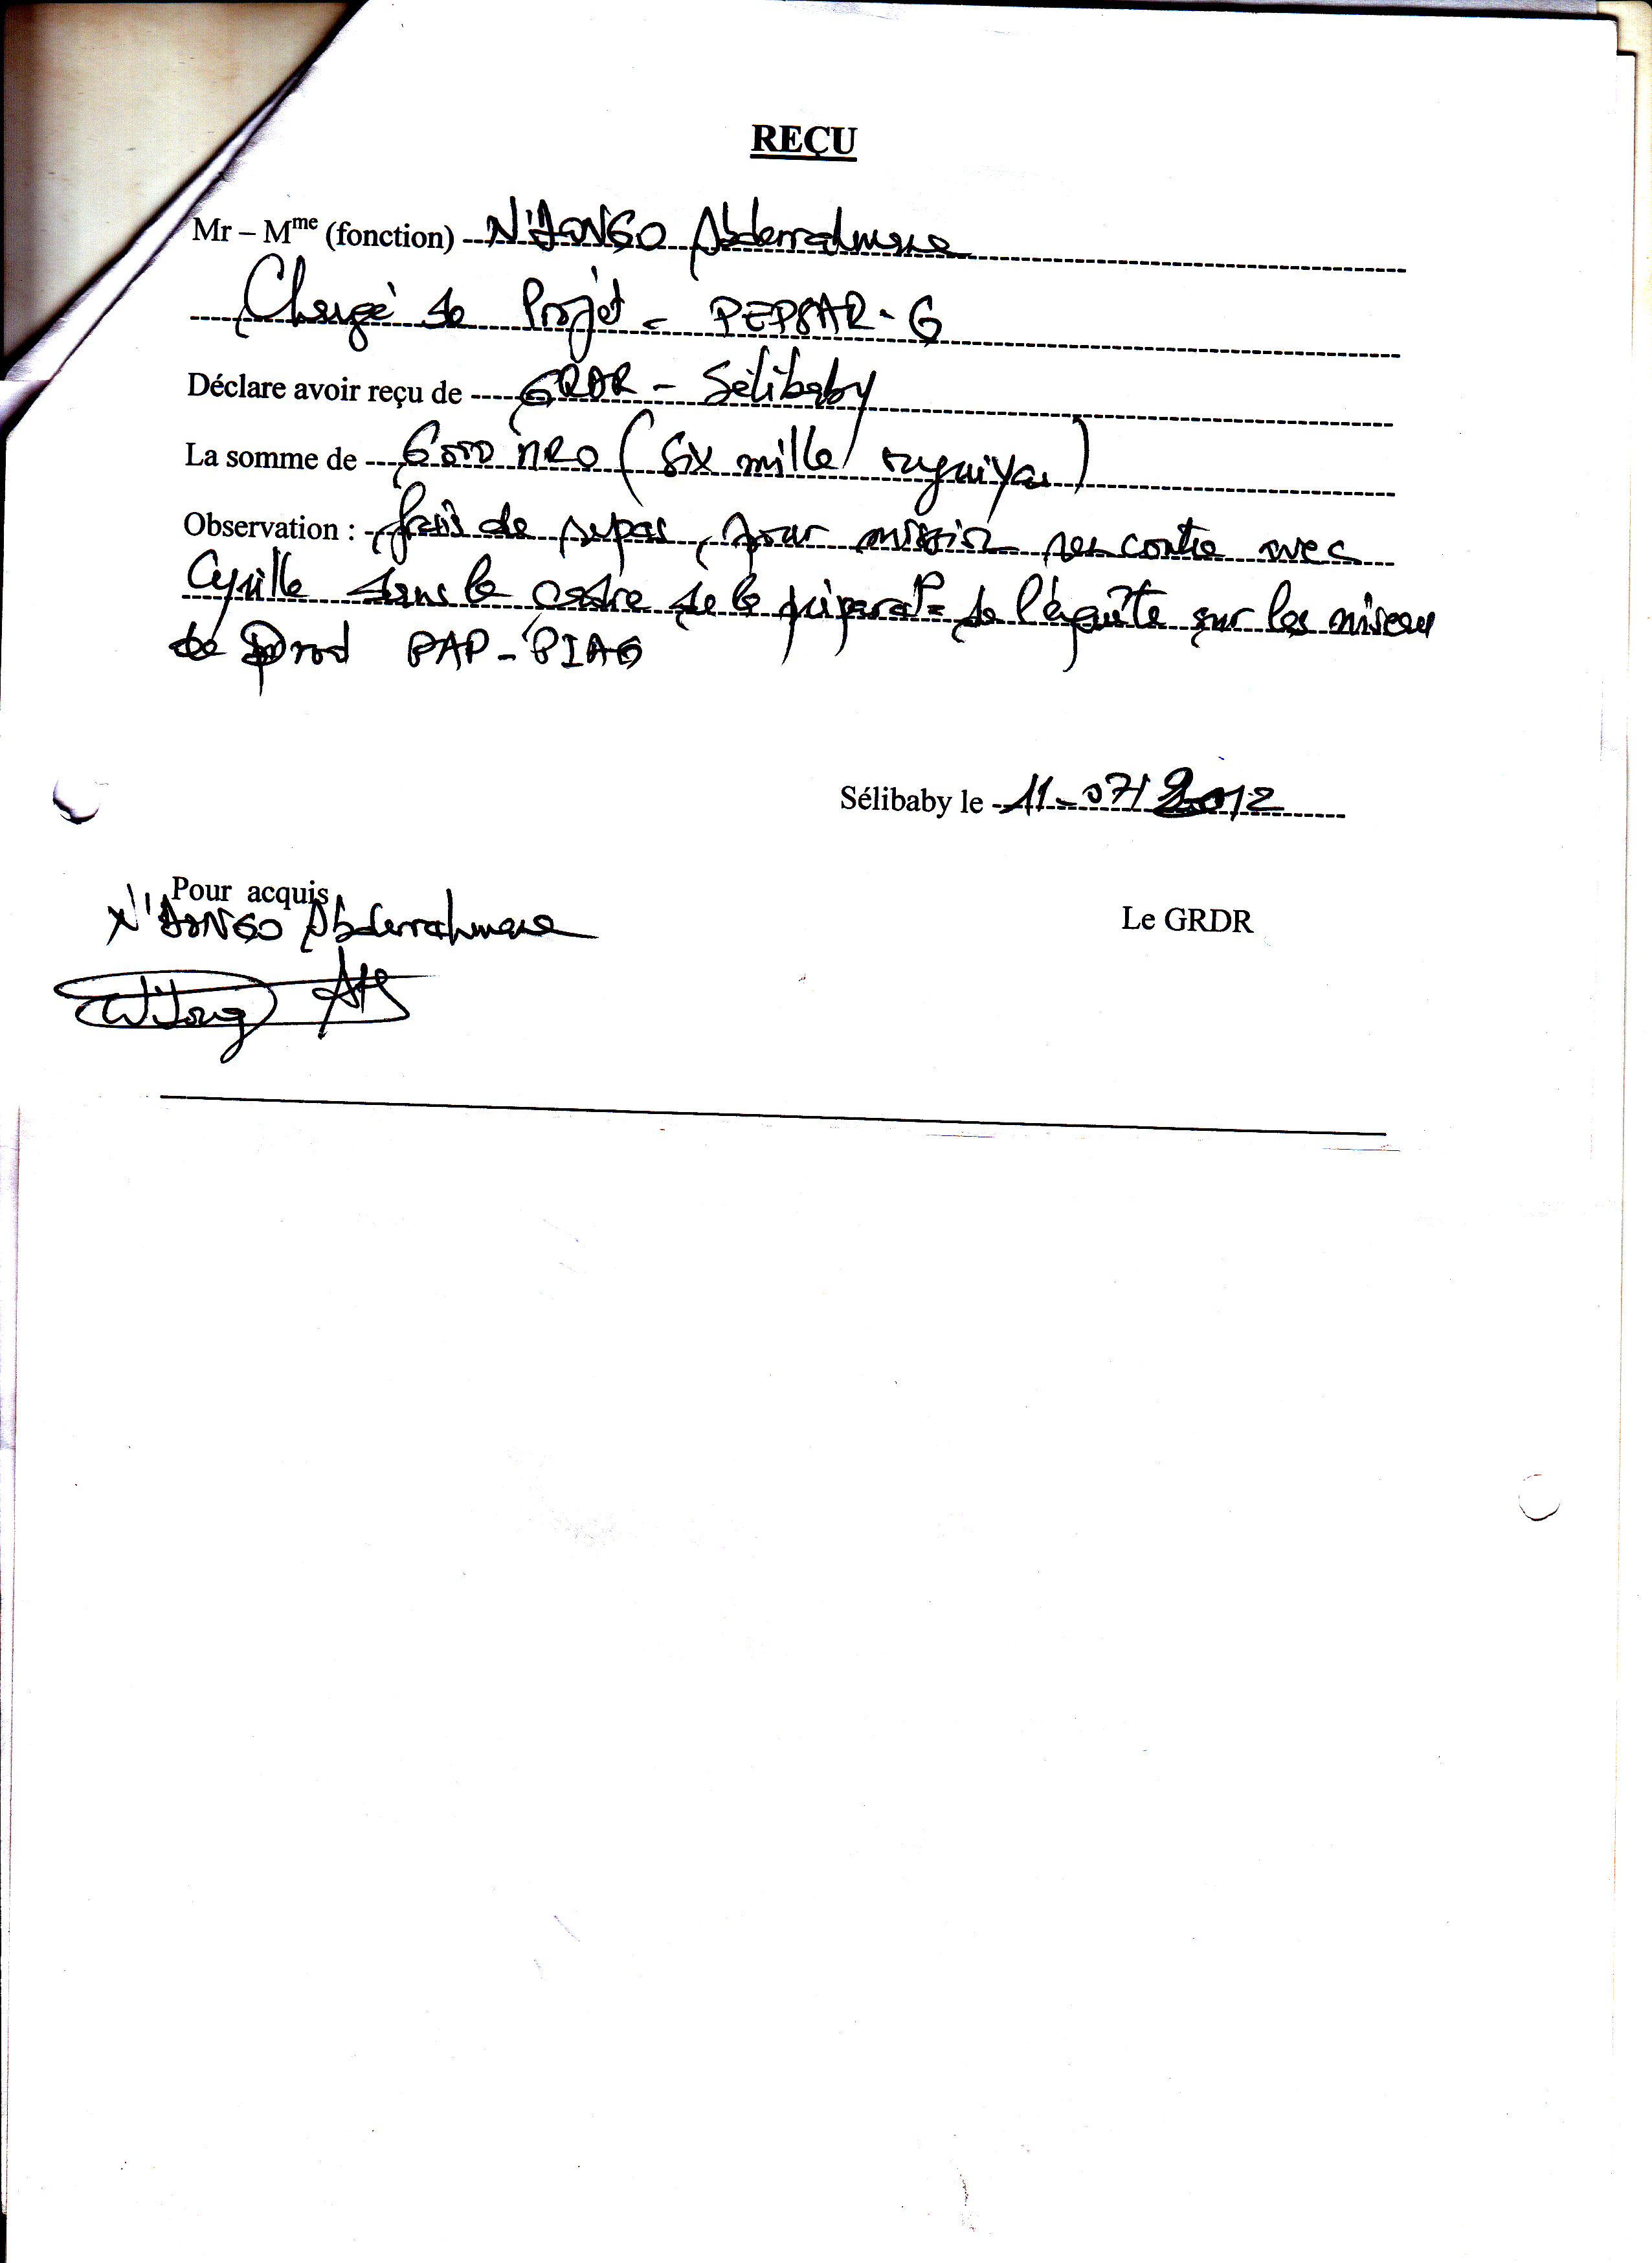 REÇU
Mr – Mme (fonction) N'DONGO Abderrahmane
Chargé de Projet - PEPSAR-G
Déclare avoir reçu de GRDR - Sélibaby
La somme de 6000 MRO (Six mille ouguiya)
Observation : frais de repas, pour mission rencontre avec
Cyrille dans le cadre de la préparat° de l'équête sur les niveau
de Prod PAP-PIAG
Sélibaby le 11-07/2012
Pour acquis
N'DONGO Abderrahmane
Le GRDR